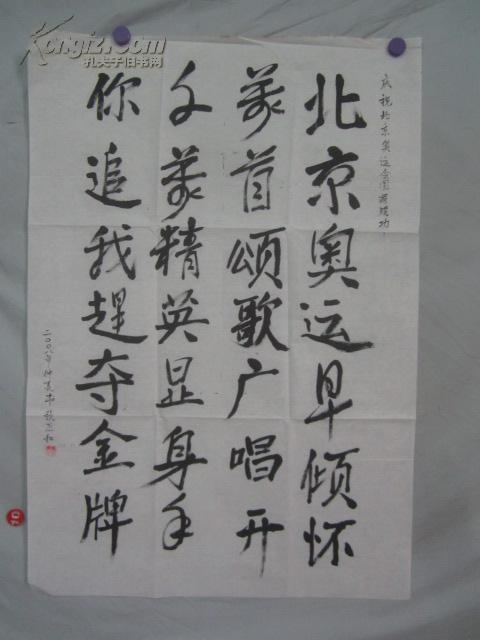 Kongfz.com
孔夫子旧书网
庆祝北京奥运会圆满成功！
北京奥运早倾怀
萬首颂歌广唱开
千萬精英显身手
你追我趕夺金牌
二〇〇八年仲夏